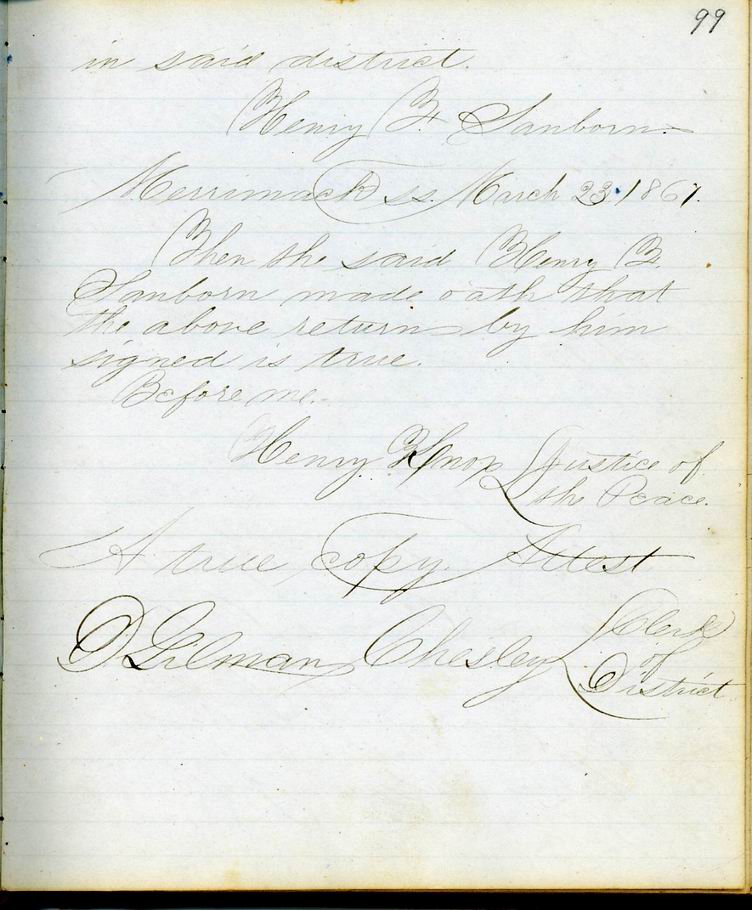 99
in said district.
Henry B. Sanborn
Merrimack ss. March 23. 1867.
Then the said Henry B.
Sanborn made oath that
the above return by him
signed is true.
Before me.
Henry Knox Justice of
the Peace.
A true copy Attest
D Gilman Chesley Clerk
of
District